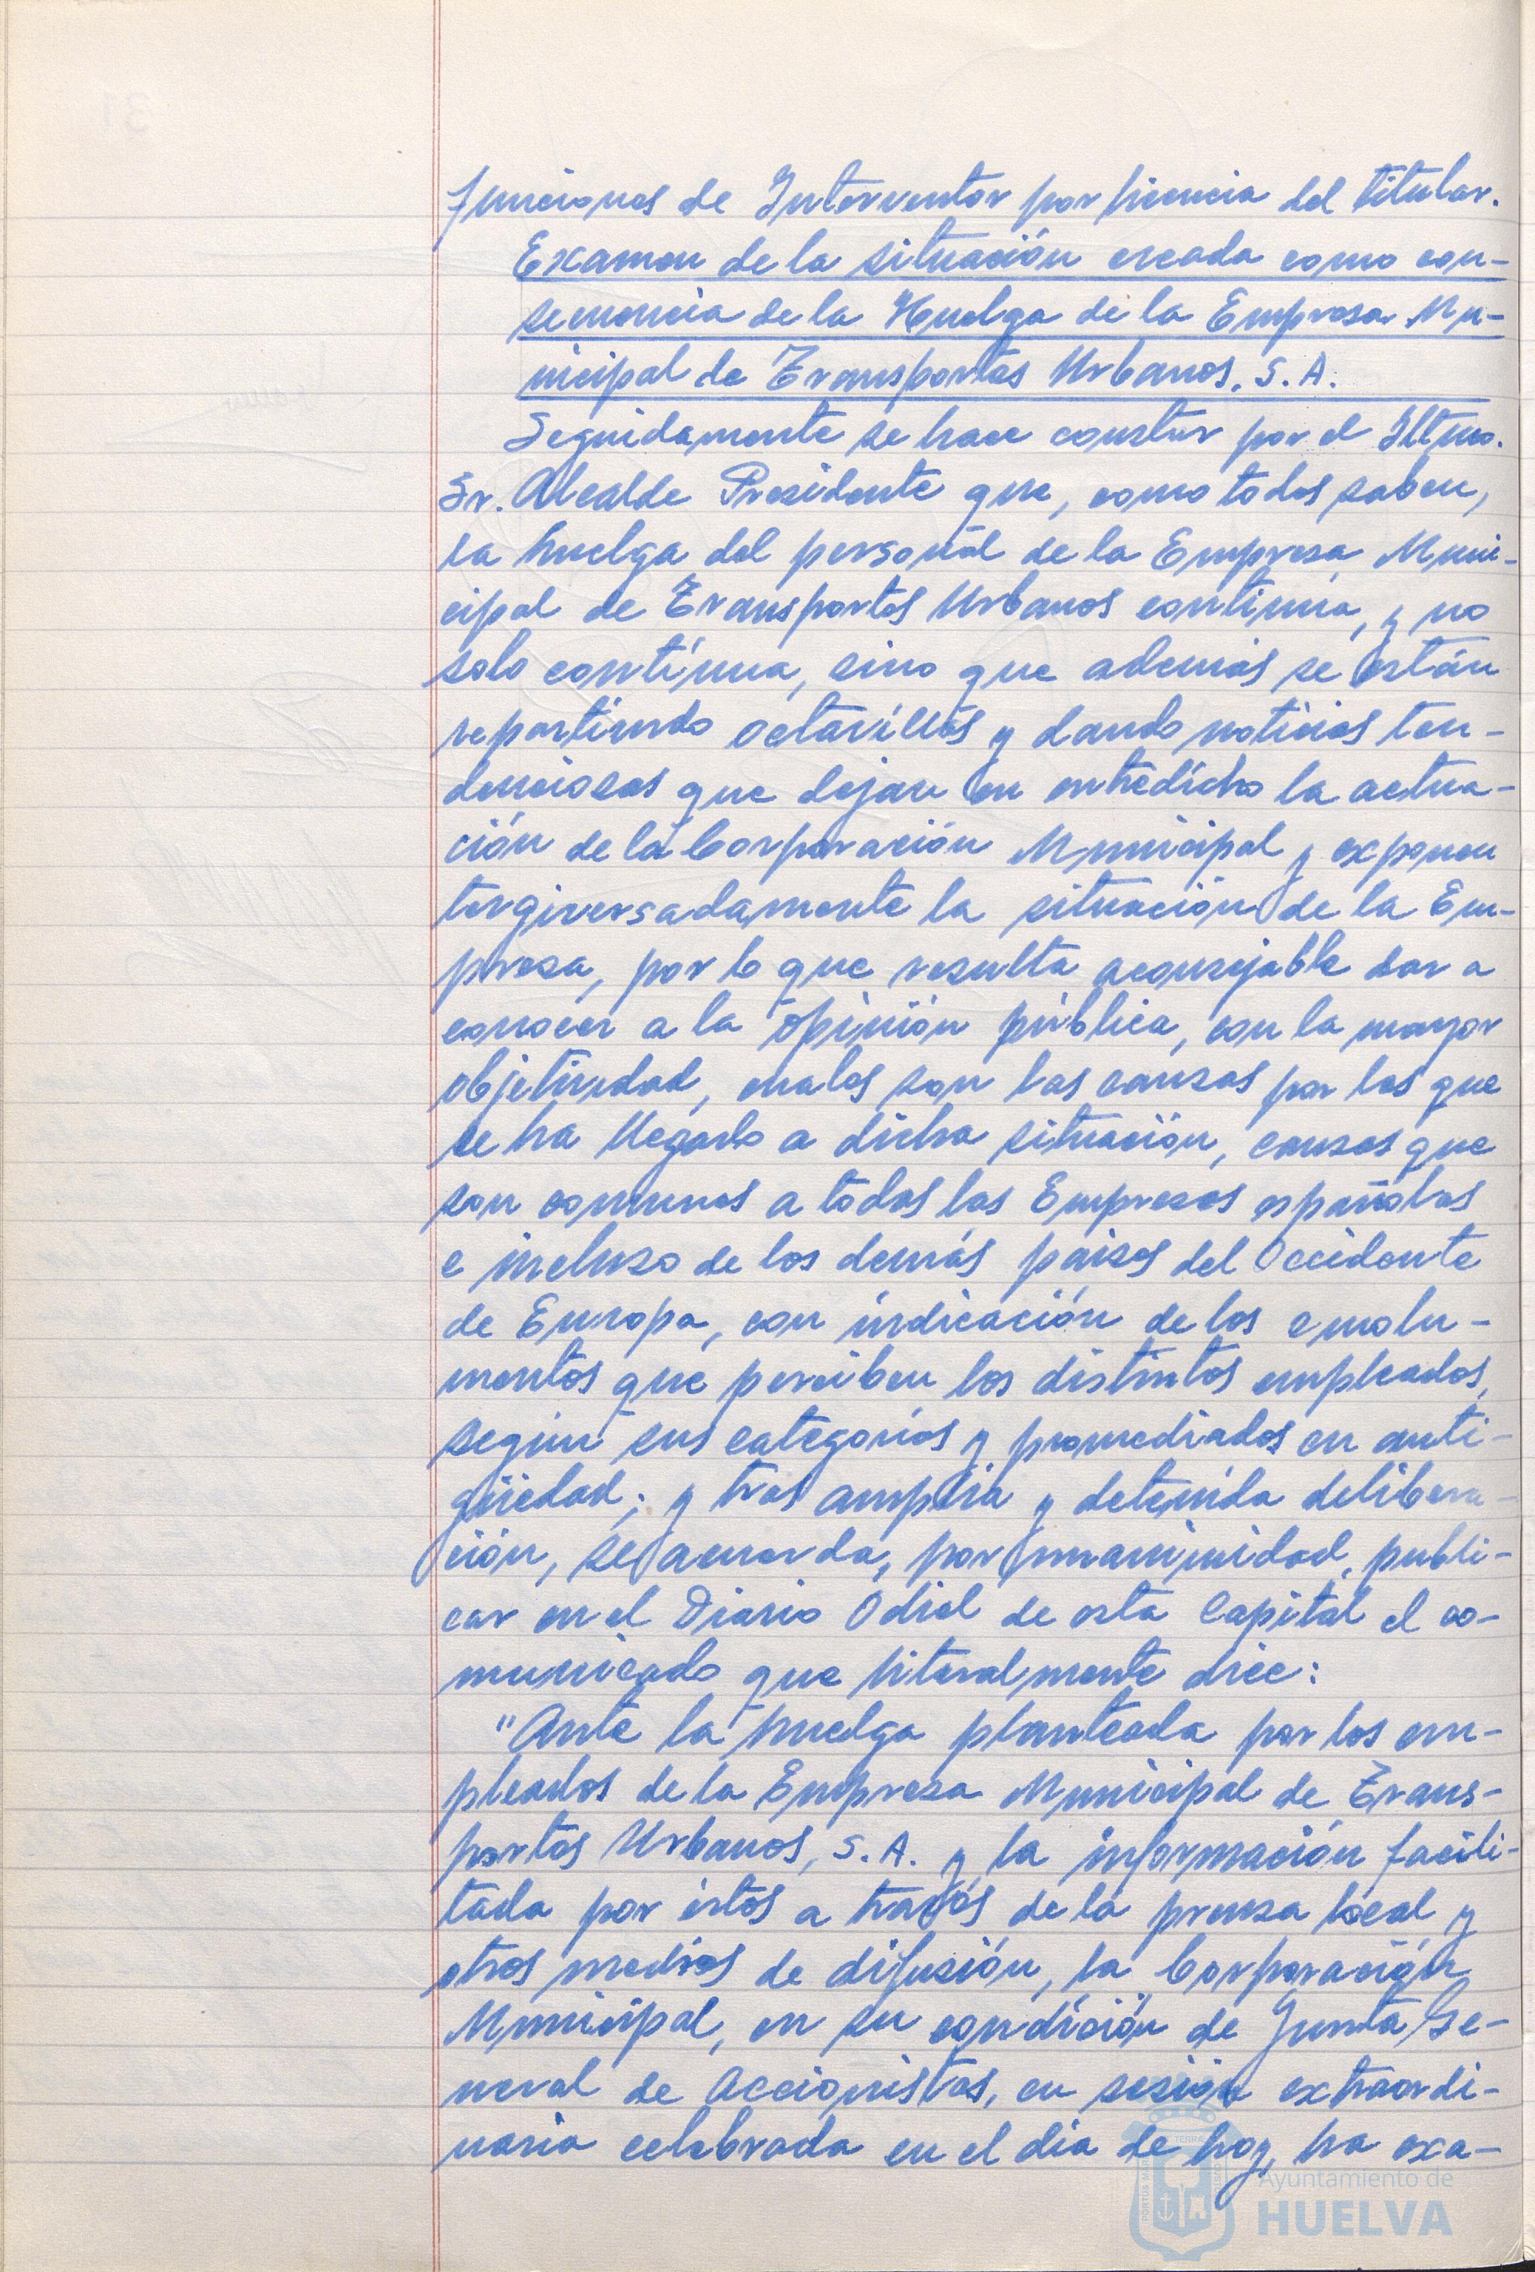 funciones de Interventor por licencia del titular.
Examen de la situación creada como con-
secuencia de la Huelga de la Empresa Mu-
nicipal de Transportes Urbanos. S. A.
Seguidamente se hace constar por el Iltmo.
Sr. Alcalde Presidente que, como todos saben,
la huelga del personal de la Empresa Muni-
cipal de Transportes Urbanos continúa, y no
solo continúa, sino que además se están
repartiendo octavillas y dando noticias ten-
denciosas que dejan en entredicho la actua-
ción de la Corporación Municipal y exponen
tergiversadamente la situación de la Em-
presa, por lo que resulta aconsejable dar a
conocer a la opinión pública, con la mayor
objetividad, cuales son las causas por las que
se ha llegado a dicha situación, causas que
son comunes a todas las Empresas españolas
e incluso de los demás paises del Occidente
de Europa, con indicación de los emolu-
mentos que perciben los distintos empleados,
según sus categorías y promediados en anti-
güedad; y tras amplia y detenida delibera-
ción, se acuerda, por unanimidad, publi-
car en el Diario Odiel de esta Capital el co-
municado que literalmente dice:
"Ante la huelga planteada por los em-
pleados de la Empresa Municipal de Trans-
portes Urbanos, S. A. y la información facili-
tada por éstos a través de la prensa local y
otros medios de difusión, la Corporación
Municipal, en su condición de Junta Ge-
neral de Accionistas, en sesión extraordi-
naria celebrada en el día de hoy, ha exa-
Ayuntamiento de
HUELVA